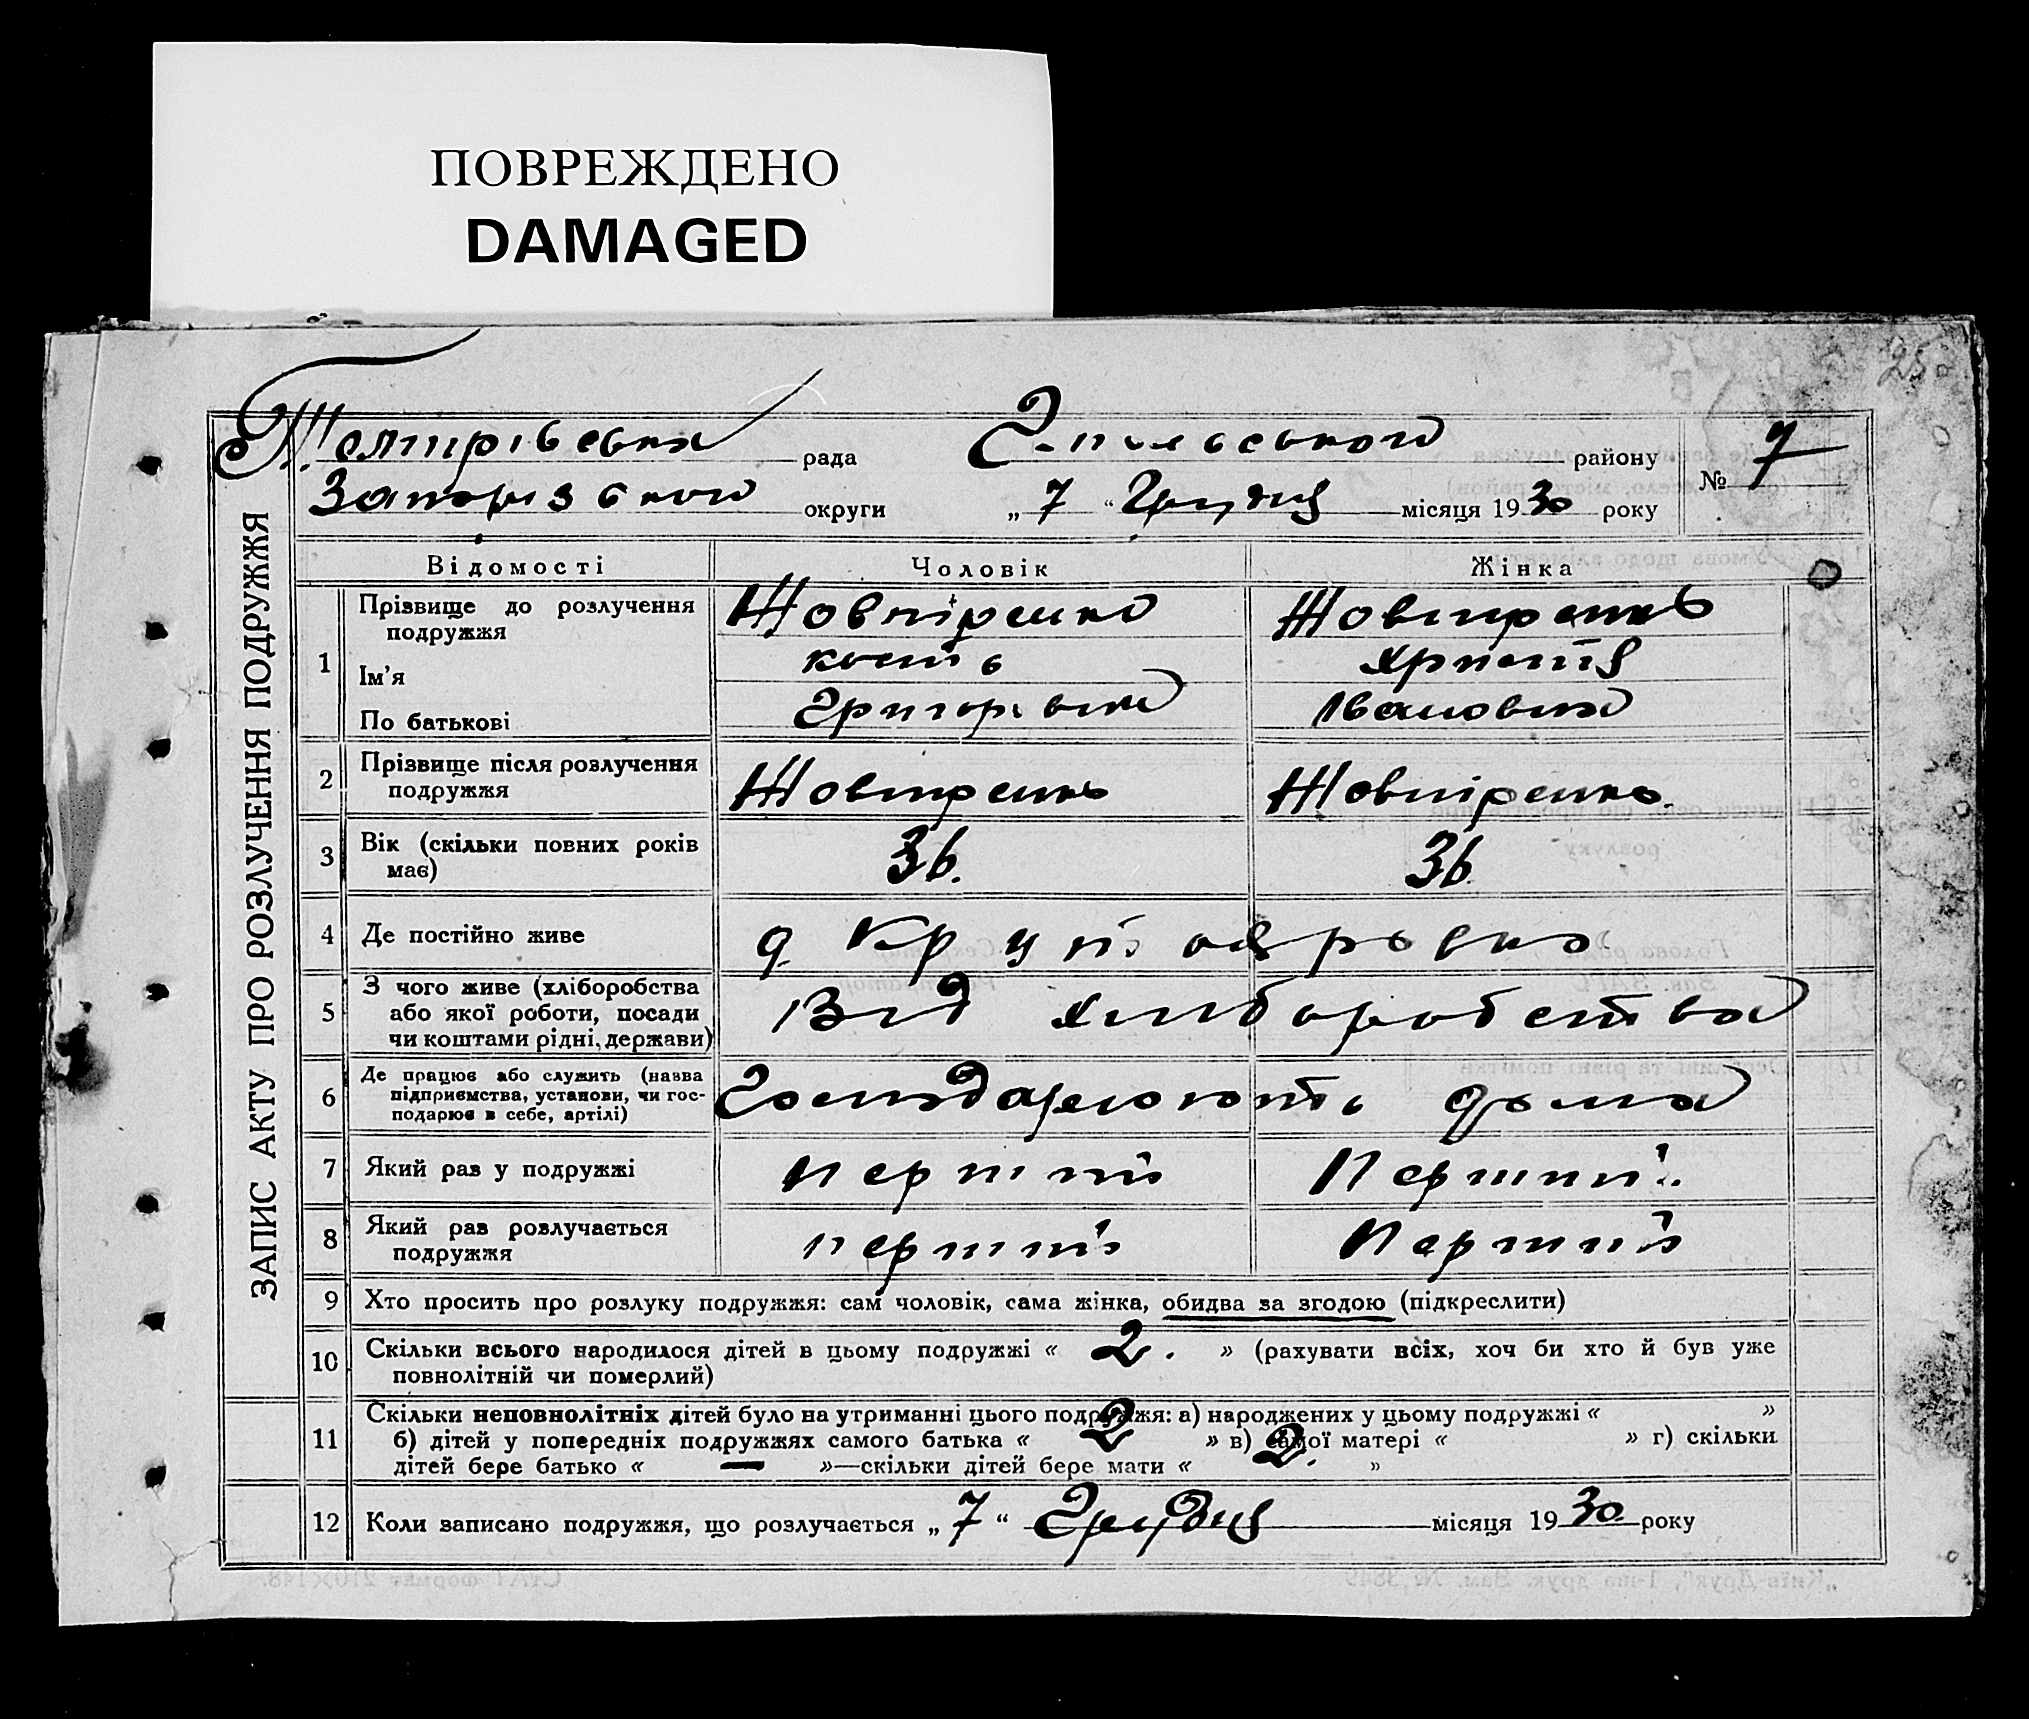 ПОВРЕЖДЕНО
DAMAGED
25
рада
району
№ 7
округи „ 7 “ Грудня місяця 1930 року
ЗАПИС АКТУ ПРО РОЗЛУЧЕННЯ ПОДРУЖЖЯ
Відомості Чоловік Жінка
1 Прізвище до розлучення Жовтіренко Жовтіренко
подружжя
Ім'я Кость Христя
По батькові Григорівич Івановна
2 Прізвище після розлучення Жовтіренко Жовтіренко
подружжя
3 Вік (скільки повних років 36. 36
має)
4 Де постійно живе
5 З чого живе (хліборобства Від хліборобства
або якої роботи, посади
чи коштами рідні, держави)
6 Де працює або служить (назва Господарюють дома
підприємства, установи, чи гос-
подарює в себе, артілі)
7 Який раз у подружжі перший Перший
8 Який раз розлучається перший Перший
подружжя
9 Хто просить про розлуку подружжя: сам чоловік, сама жінка, обидва за згодою (підкреслити)
10 Скільки всього народилося дітей в цьому подружжі « 2. » (рахувати всіх, хоч би хто й був уже
повнолітній чи померлий)
11 Скільки неповнолітніх дітей було на утриманні цього подружжя: а) народжених у цьому подружжі « »
б) дітей у попередніх подружжях самого батька « 2 » в) самої матері « » г) скільки
дітей бере батько « — »—скільки дітей бере мати « 2. »
12 Коли записано подружжя, що розлучається „ 7 “ Грудня місяця 1930 року